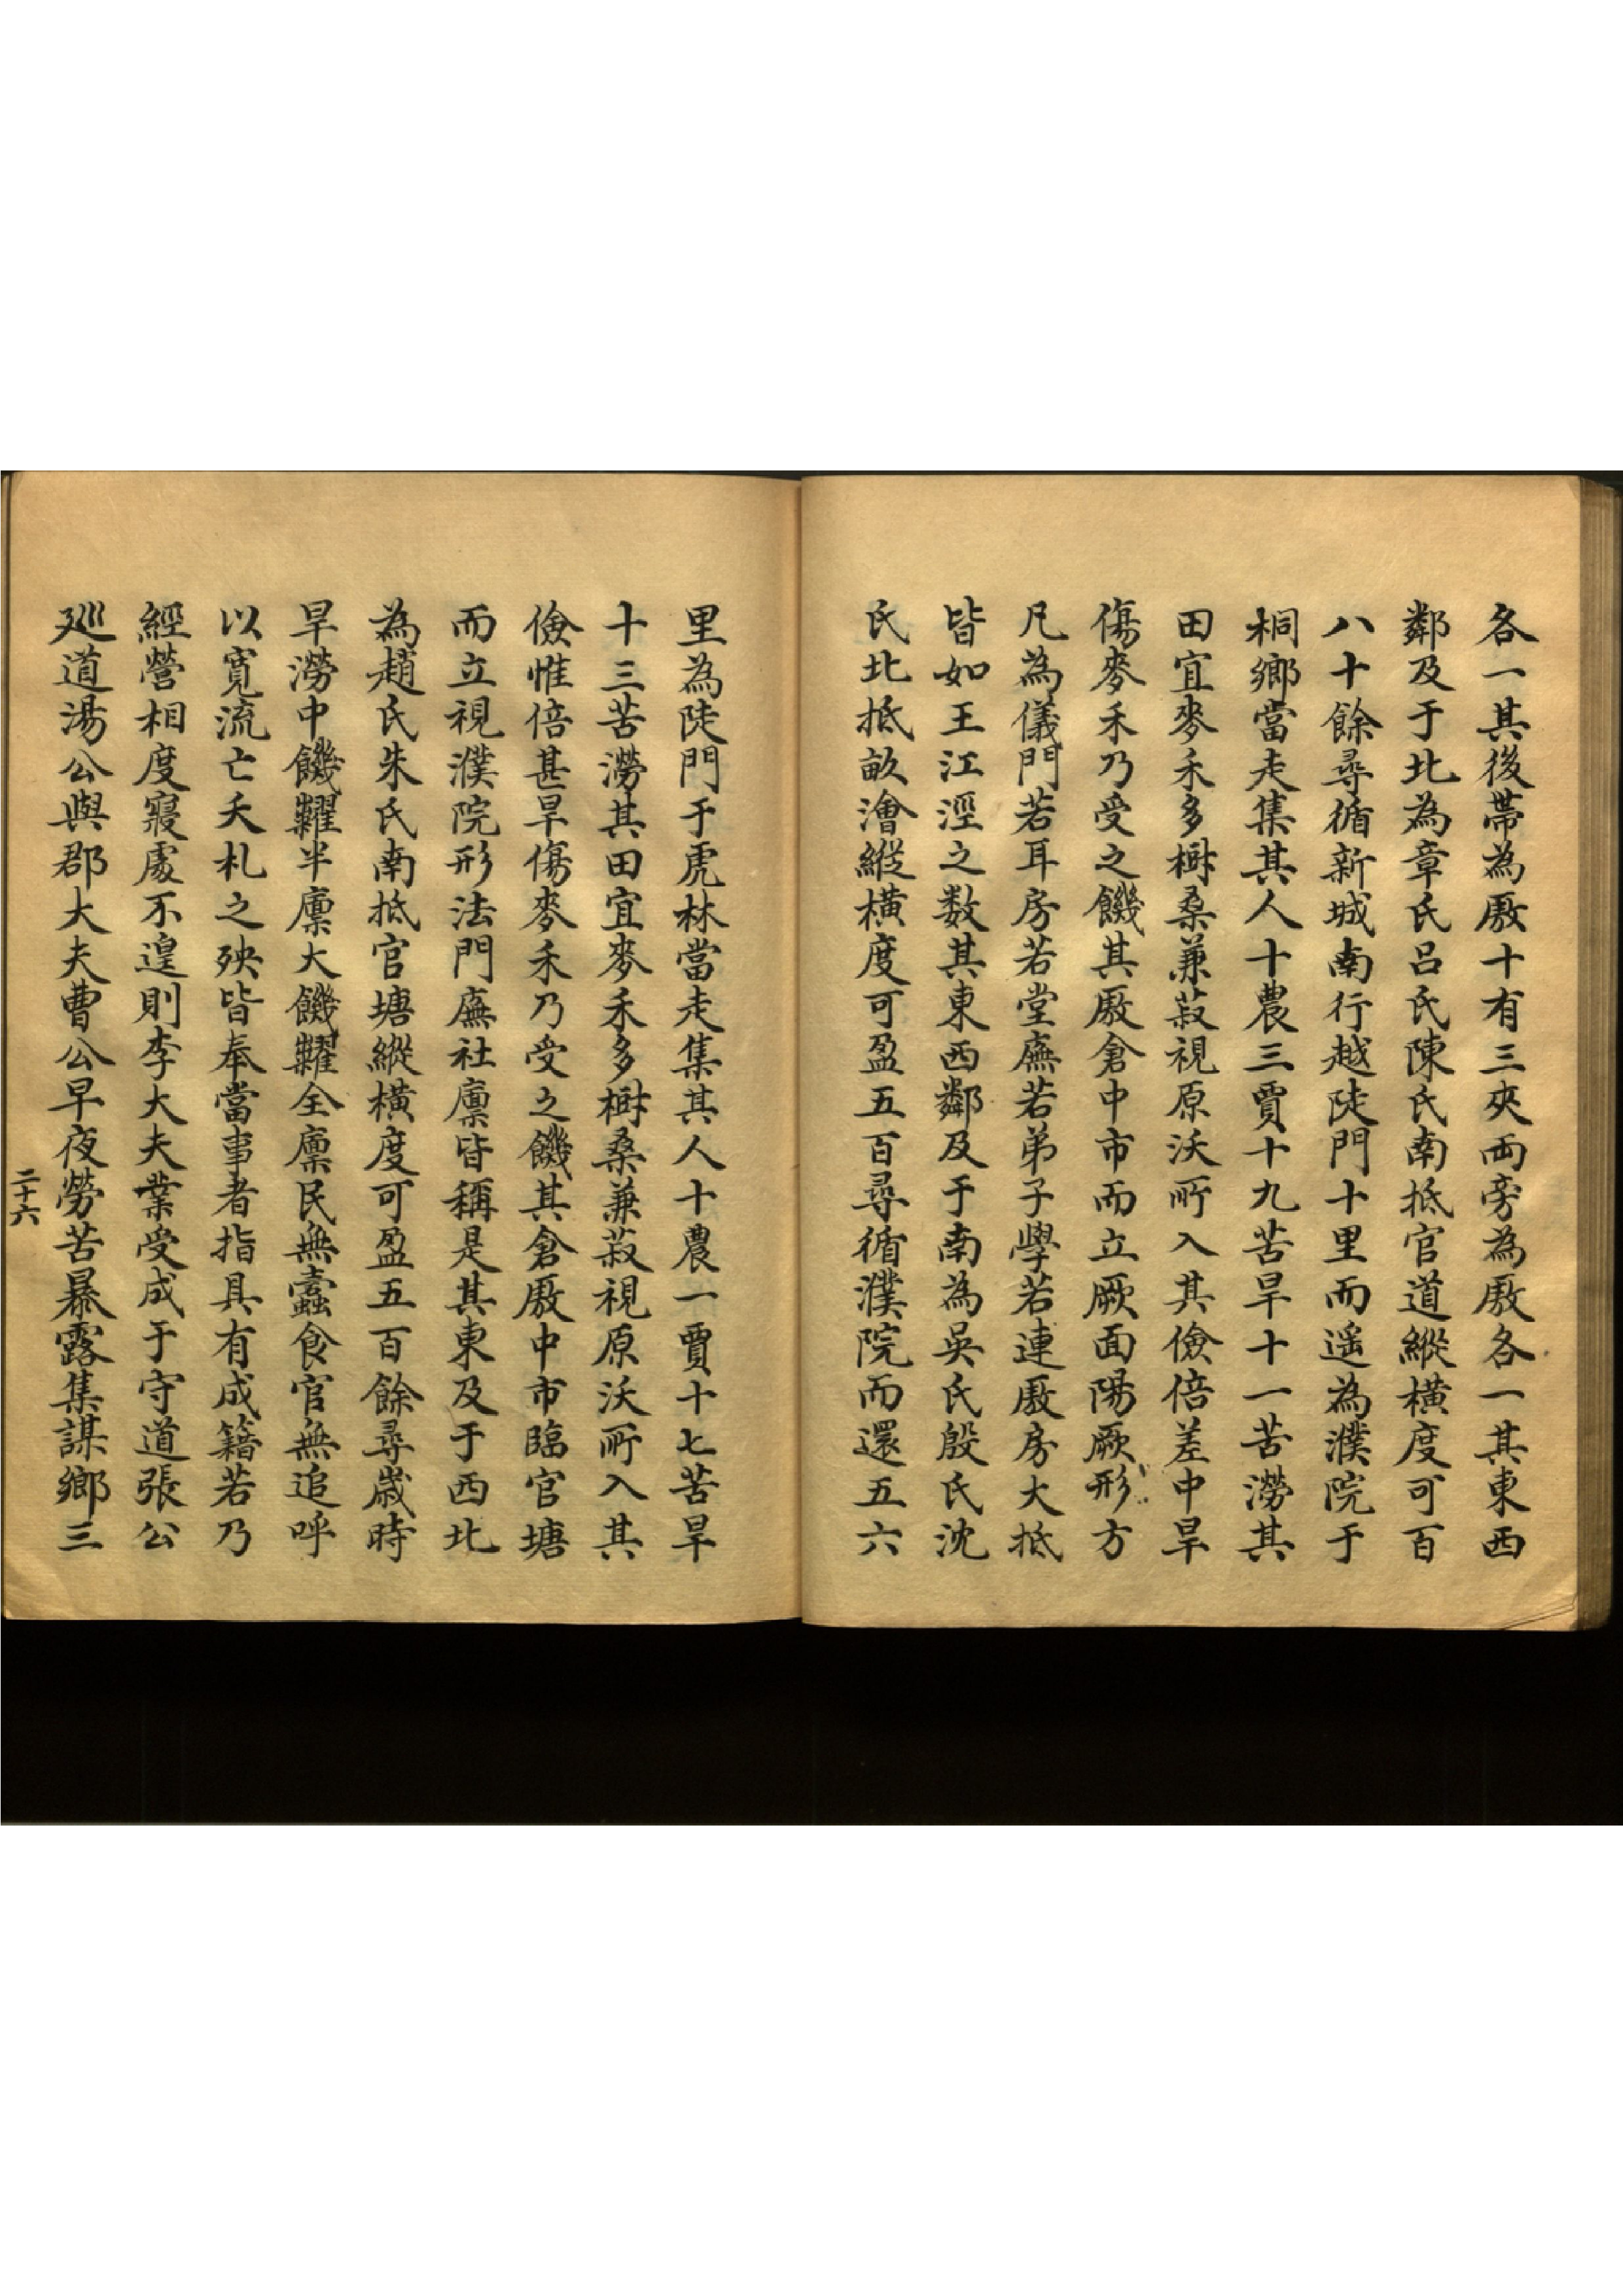 各一其後帶為厫十有三夾両旁為厫各一其東西
鄰及于北為章氏呂氏陳氏南抵官道縱橫度可百
八十餘尋循新城南行越陡門十里而遥為濮院于
桐鄉當走集其人十農三賈十九苦旱十一苦澇其
田宜麥禾多樹桑兼菽視原沃所入其儉倍差中旱
傷麥禾乃受之饑其厫倉中市而立厥面陽厥形方
凡為儀門若耳房若堂廡若弟子學若連厫房大抵
皆如王江涇之数其東西鄰及于南為吳氏殷氏沈
氏北抵畝澮縱橫度可盈五百尋循濮院而還五六
里為陡門于虎林當走集其人十農一賈十七苦旱
十三苦澇其田宜麥禾多樹桑兼菽視原沃所入其
儉惟倍甚旱傷麥禾乃受之饑其倉厫中市臨官塘
而立視濮院形法門廡社廪皆稱是其東及于西北
為趙氏朱氏南抵官塘縱橫度可盈五百餘尋歲時
旱澇中饑糶半廪大饑糶全廪民無蠹食官無追呼
以寛流亡夭札之殃皆奉當事者指具有成籍若乃
經營相度寢處不遑則李大夫業受成于守道張公
廵道湯公與郡大夫曹公早夜勞苦暴露集謀鄉三
二十六